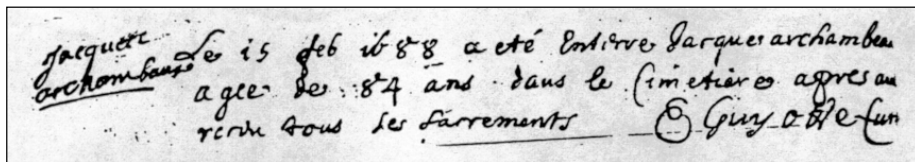 Jacques
archambaux
Le 15 feb 1688 a eté Enterre Jacques archambau
agee de 84 ans dans le Cimetiere apres au
receu tous les sacrements E Guyotte Cur